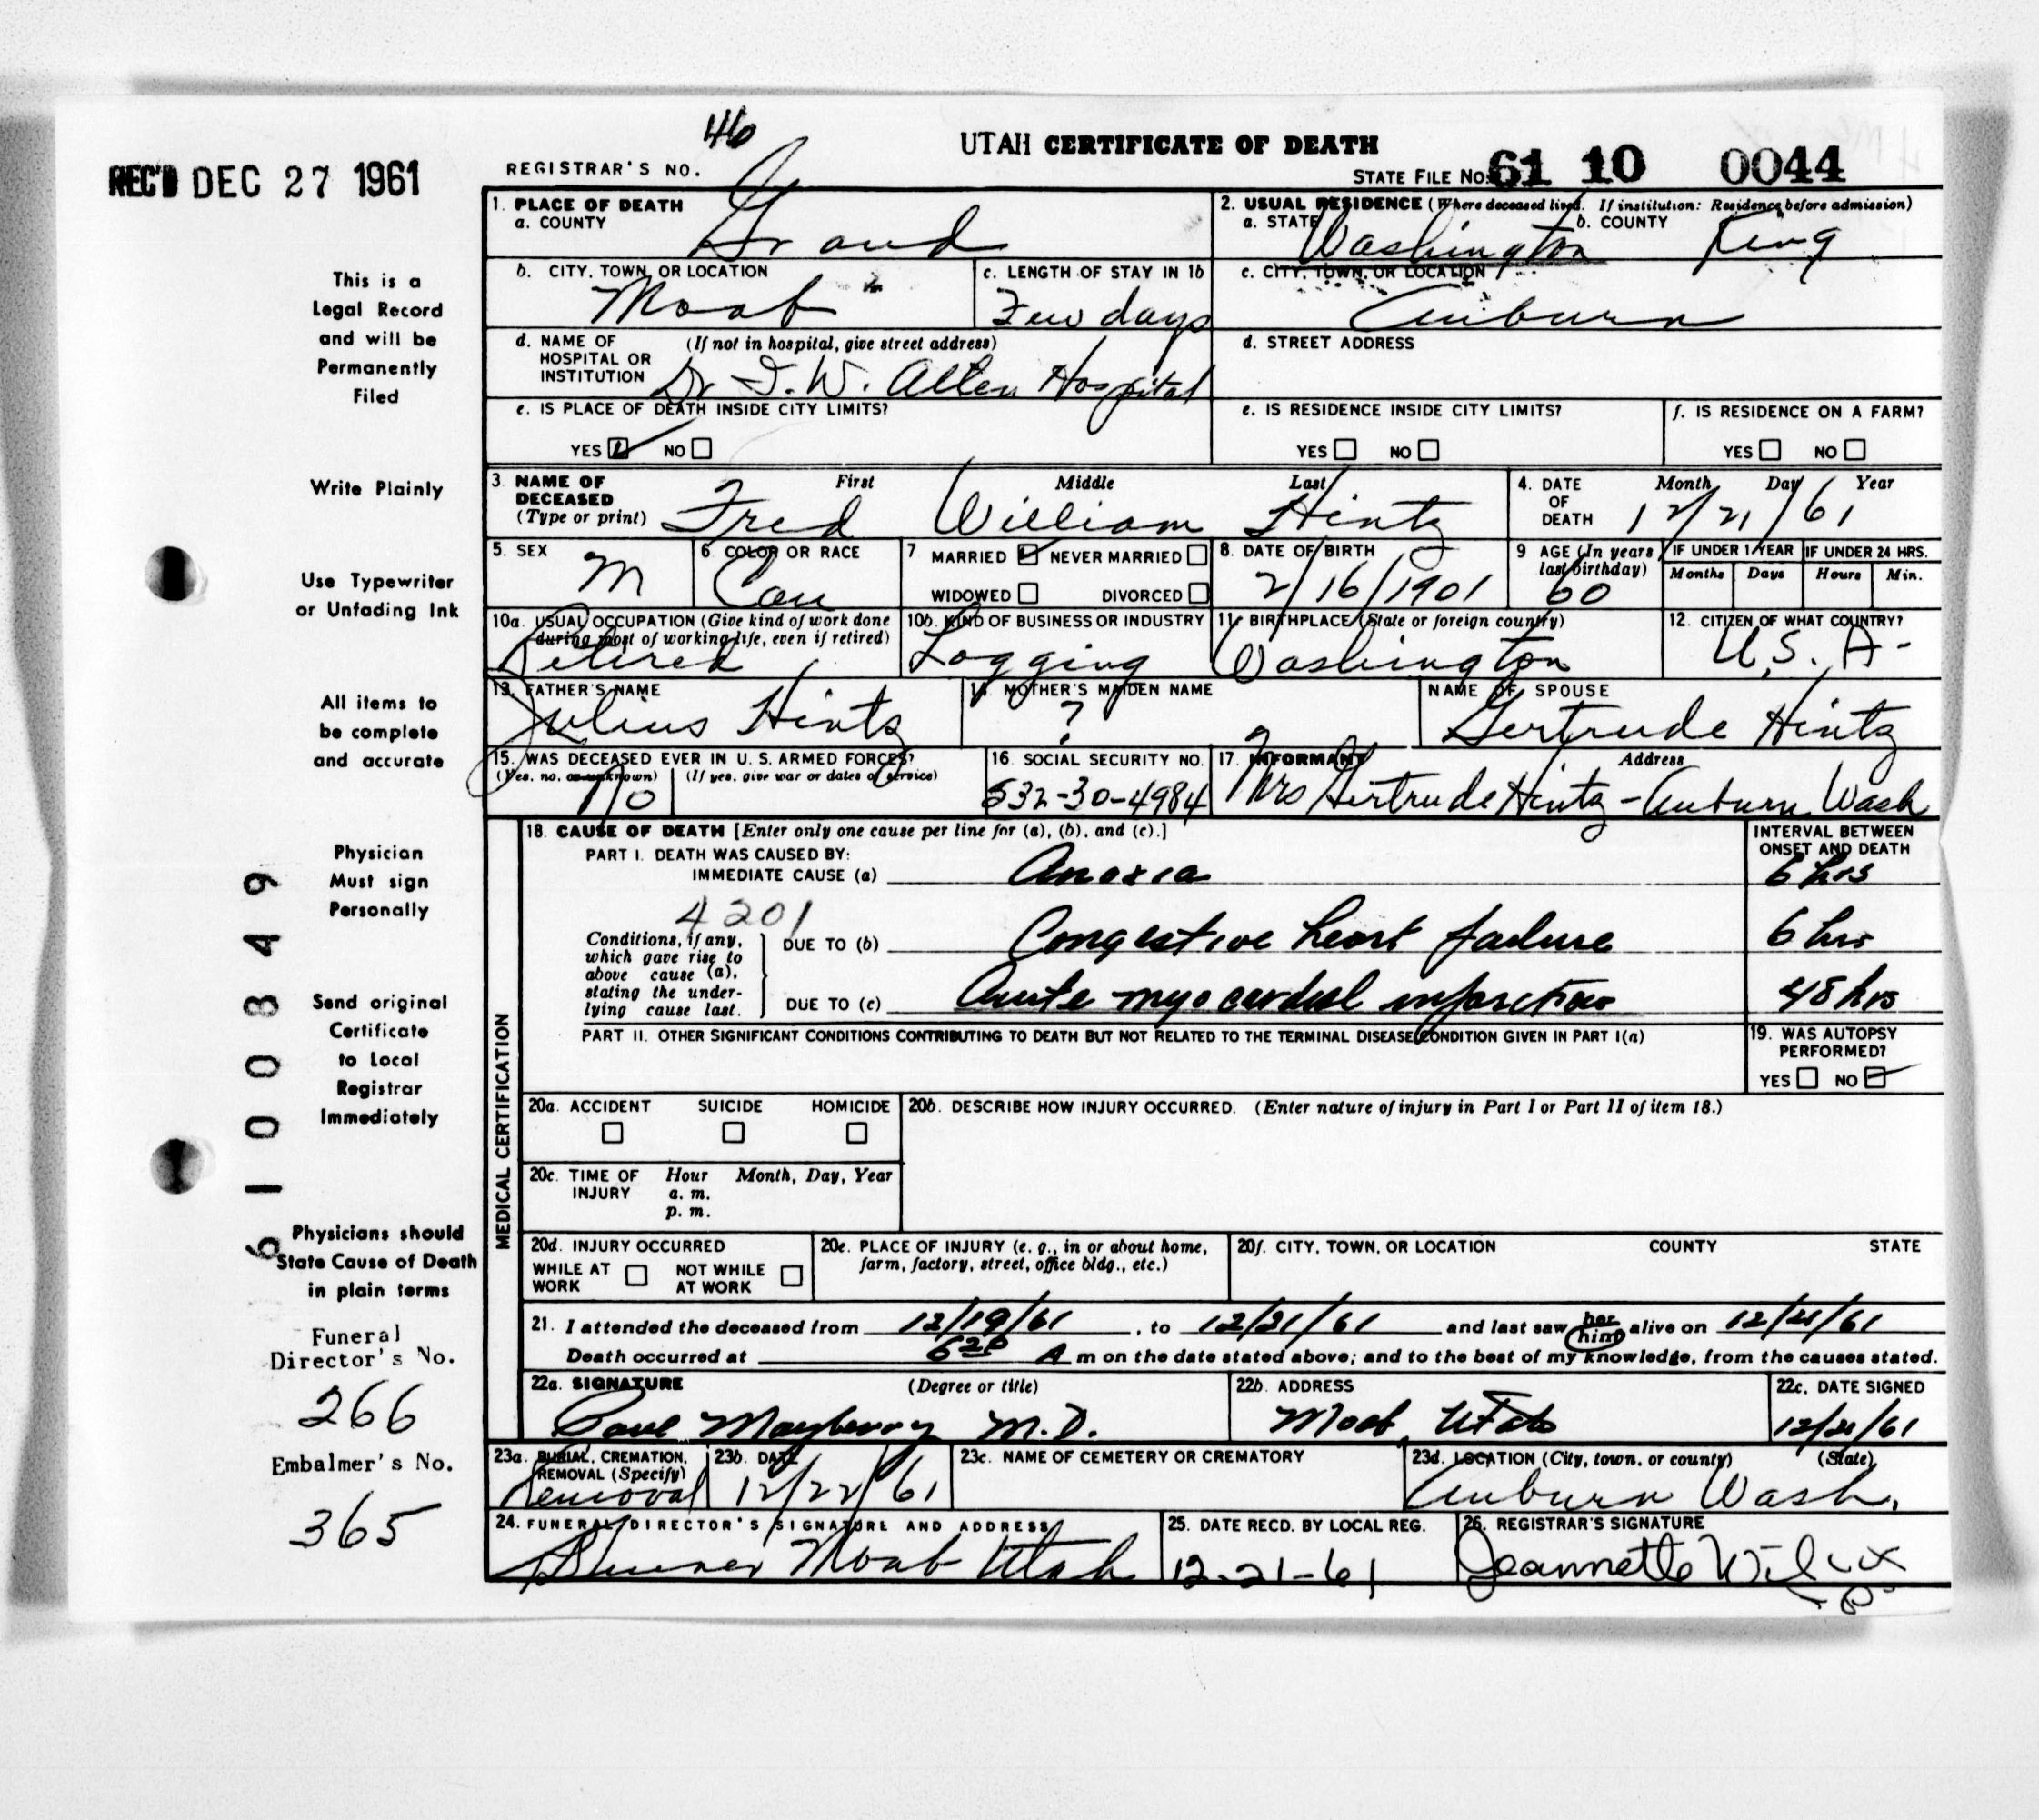 46
UTAH CERTIFICATE OF DEATH
REC'D DEC 27 1961
REGISTRAR'S NO.
STATE FILE NO. 61 10 0044
1. PLACE OF DEATH
a. COUNTY
Grand
2. USUAL RESIDENCE (Where deceased lived. If institution: Residence before admission)
a. STATE Washington b. COUNTY King
b. CITY, TOWN, OR LOCATION
Moab
c. LENGTH OF STAY IN 1b
Few days
c. CITY, TOWN, OR LOCATION
Auburn
d. NAME OF HOSPITAL OR INSTITUTION (If not in hospital, give street address)
Dr I. W. Allen Hospital
d. STREET ADDRESS
e. IS PLACE OF DEATH INSIDE CITY LIMITS?
YES NO
e. IS RESIDENCE INSIDE CITY LIMITS?
YES NO
f. IS RESIDENCE ON A FARM?
YES NO
3. NAME OF DECEASED (Type or print) First Middle Last
Fred William Hintz
4. DATE OF DEATH Month Day Year
12/21/61
5. SEX
M
6 COLOR OR RACE
Cau
7 MARRIED NEVER MARRIED
WIDOWED DIVORCED
8. DATE OF BIRTH
2/16/1901
9 AGE (In years last birthday)
60
IF UNDER 1 YEAR
Months Days
IF UNDER 24 HRS.
Hours Min.
10a. USUAL OCCUPATION (Give kind of work done during most of working life, even if retired)
Retired
10b. KIND OF BUSINESS OR INDUSTRY
Logging
11. BIRTHPLACE (State or foreign country)
Washington
12. CITIZEN OF WHAT COUNTRY?
U.S.A-
13. FATHER'S NAME
Julius Hintz
14. MOTHER'S MAIDEN NAME
?
NAME OF SPOUSE
Gertrude Hintz
15. WAS DECEASED EVER IN U. S. ARMED FORCES?
(Yes, no, or unknown) (If yes, give war or dates of service)
No
16. SOCIAL SECURITY NO.
532-30-4984
17. INFORMANT Address
Mrs Gertrude Hintz - Auburn Wash
MEDICAL CERTIFICATION
18. CAUSE OF DEATH [Enter only one cause per line for (a), (b), and (c).]
INTERVAL BETWEEN ONSET AND DEATH
PART I. DEATH WAS CAUSED BY:
IMMEDIATE CAUSE (a) Anoxia 6 hrs
4201
Conditions, if any, which gave rise to above cause (a), stating the underlying cause last.
DUE TO (b) Congestive heart failure 6 hrs
DUE TO (c) Acute myocardial infarction 48 hrs
PART II. OTHER SIGNIFICANT CONDITIONS CONTRIBUTING TO DEATH BUT NOT RELATED TO THE TERMINAL DISEASE CONDITION GIVEN IN PART I(a)
19. WAS AUTOPSY PERFORMED?
YES NO
20a. ACCIDENT SUICIDE HOMICIDE
20b. DESCRIBE HOW INJURY OCCURRED. (Enter nature of injury in Part I or Part II of item 18.)
20c. TIME OF INJURY Hour Month, Day, Year
a. m.
p. m.
20d. INJURY OCCURRED
WHILE AT WORK NOT WHILE AT WORK
20e. PLACE OF INJURY (e. g., in or about home, farm, factory, street, office bldg., etc.)
20f. CITY, TOWN, OR LOCATION COUNTY STATE
21. I attended the deceased from 12/19/61, to 12/21/61 and last saw her him alive on 12/21/61
Death occurred at 620 A m on the date stated above; and to the best of my knowledge, from the causes stated.
22a. SIGNATURE (Degree or title)
Paul Mayberry M.D.
22b. ADDRESS
Moab, Utah
22c. DATE SIGNED
12/21/61
23a. BURIAL, CREMATION, REMOVAL (Specify)
Removal
23b. DATE
12/22/61
23c. NAME OF CEMETERY OR CREMATORY
23d. LOCATION (City, town, or county) (State)
Auburn Wash.
24. FUNERAL DIRECTOR'S SIGNATURE AND ADDRESS
Moab Utah
25. DATE RECD. BY LOCAL REG.
12-21-61
26. REGISTRAR'S SIGNATURE
Jeannette Wilcox
This is a
Legal Record
and will be
Permanently
Filed
Write Plainly
Use Typewriter
or Unfading Ink
All items to
be complete
and accurate
Physician
Must sign
Personally
Send original
Certificate
to Local
Registrar
Immediately
Physicians should
State Cause of Death
in plain terms
Funeral
Director's No.
266
Embalmer's No.
365
6100849